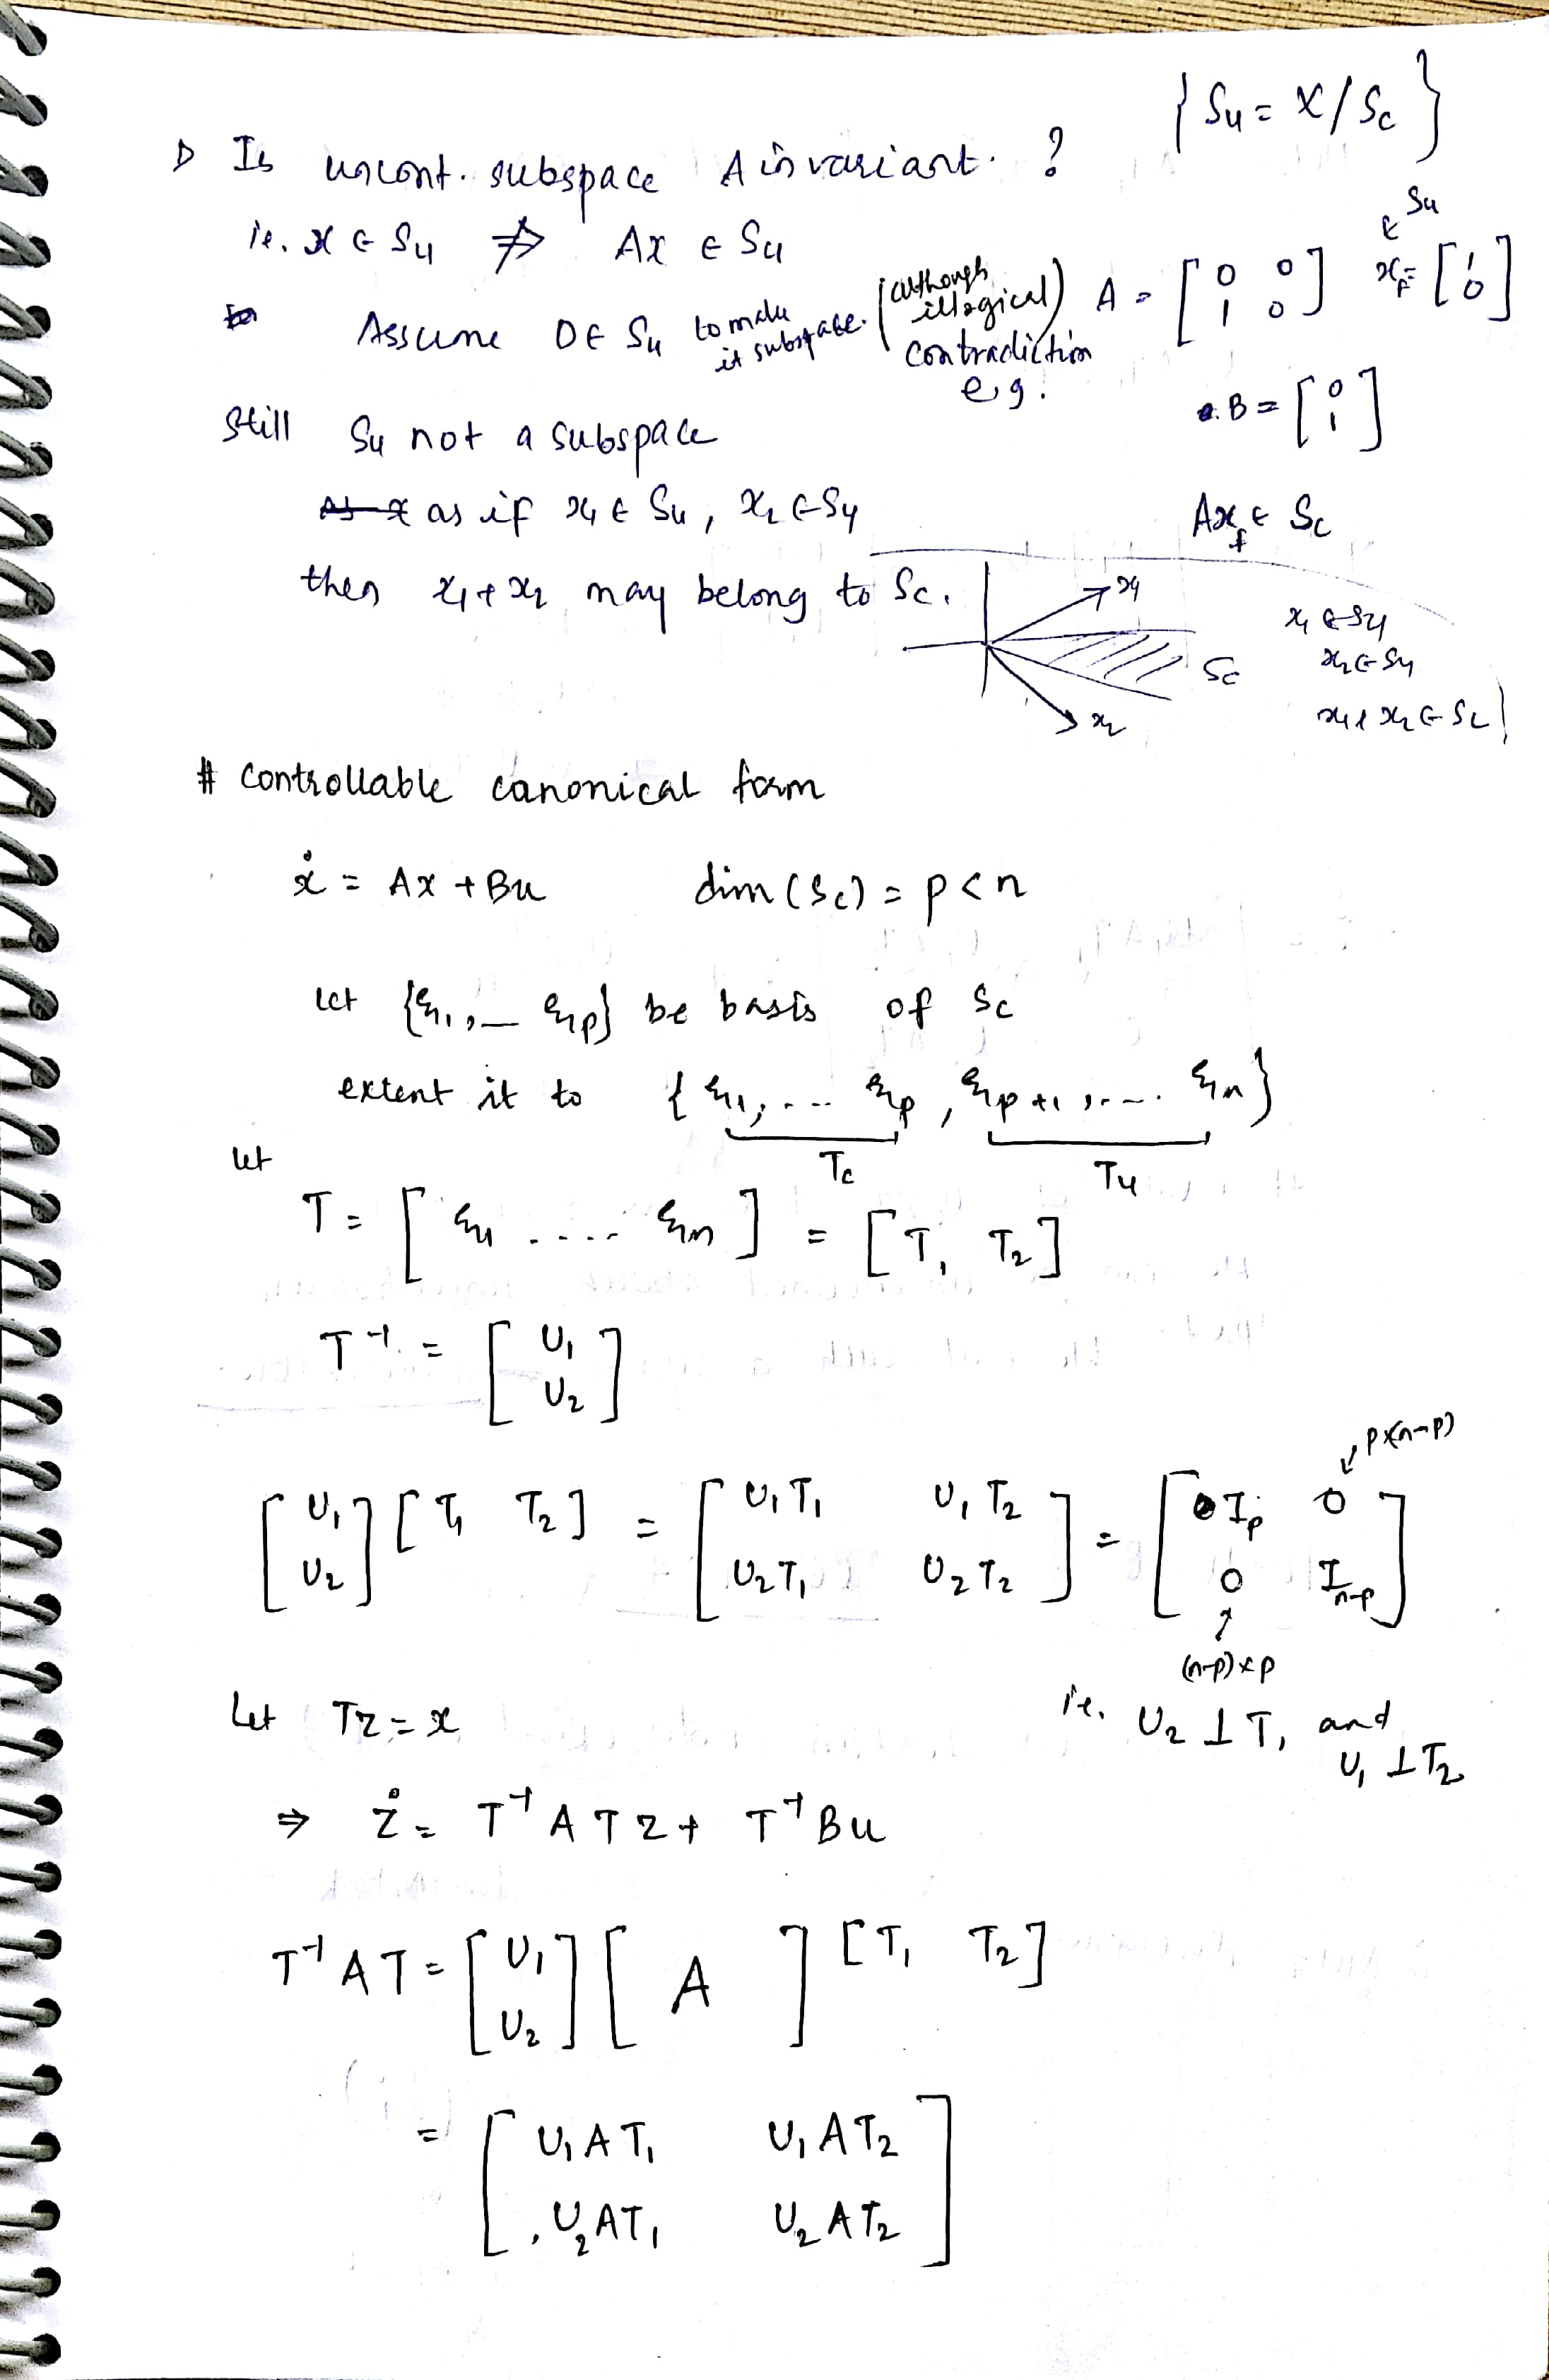 { Su = X/Sc }
▷ Is uncont. subspace A invariant. ?
ie. x ∈ Su ⇏ Ax ∈ Su
Assume 0 ∈ Su to make it subspace. (although illogical)
contradiction e.g.
A = [0 0; 1 0] x_f = [1; 0] ∈ Su
B = [0; 1]
Still Su not a subspace
as if x1 ∈ Su, x2 ∈ Su
Ax_f ∈ Sc
then x1 + x2 may belong to Sc.
x1
Sc
x2
x1 ∈ Su
x2 ∈ Su
x1 + x2 ∈ Sc
# controllable canonical form
ẋ = Ax + Bu dim(Sc) = p < n
let {ξ1, _ ξp} be basis of Sc
extent it to { ξ1, ... ξp, ξp+1, ... ξn }
Tc Tu
let
T = [ ξ1 .... ξn ] = [T1 T2]
T⁻¹ = [U1; U2]
p×(n-p)
[U1; U2] [T1 T2] = [U1T1 U1T2; U2T1 U2T2] = [Ip 0; 0 In-p]
(n-p)×p
Let Tz = x
ie. U2 ⊥ T1 and
U1 ⊥ T2
⇒ ż = T⁻¹ATz + T⁻¹Bu
T⁻¹AT = [U1; U2] [A] [T1 T2]
= [U1AT1 U1AT2; U2AT1 U2AT2]